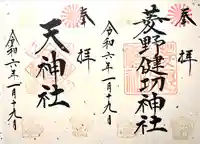 奉拝
菱野健功神社
令和六年一月十九日
奉拝
天神社
令和六年一月十九日